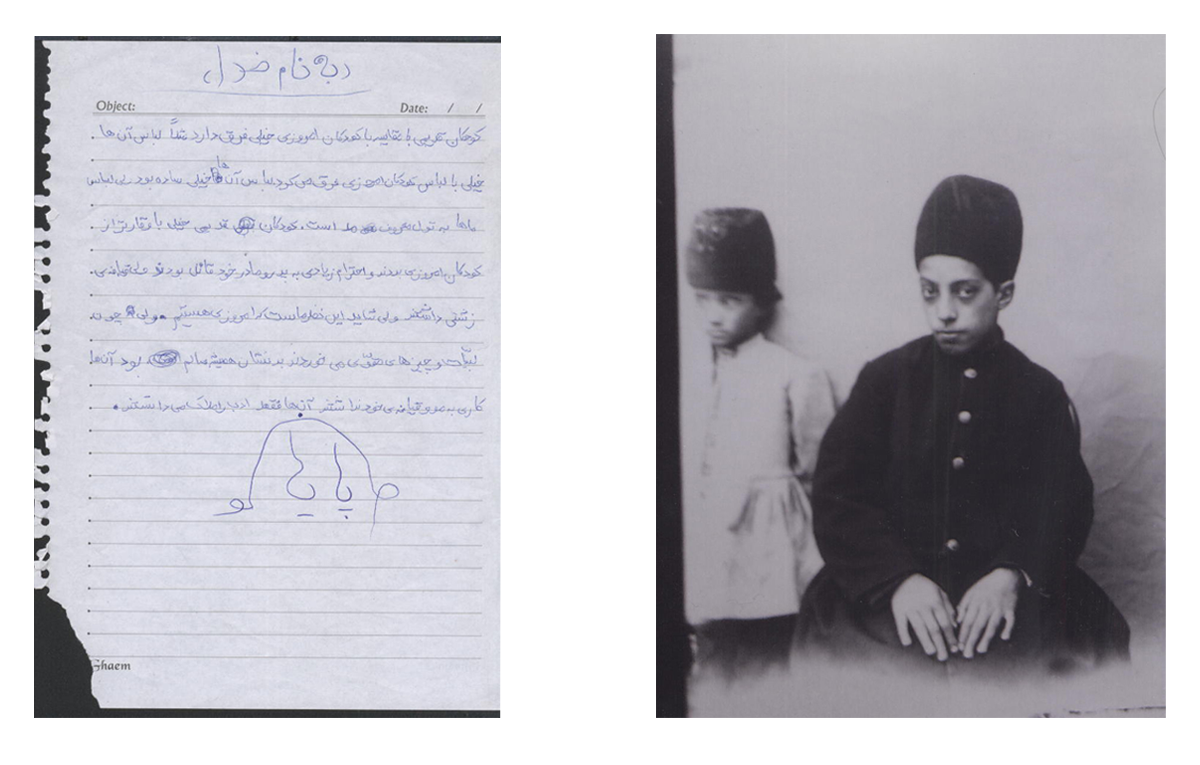 به نام خدا
Object: Date: / /
کودکان قدیمی با مقایسه با کودکان امروزی خیلی فرق دارد مثلاً لباس آن ها
خیلی با لباس کودکان امروزی فرق می کرد لباس آن ها خیلی ساده بود بی لباس
ماها به قول معروف مد است. کودکان قدیمی خیلی با وقارتر از
کودکان امروزی بودند و احترام زیادی به پدر و مادر خود قائل بودند
زشتی داشتند ولی شاید این نظر ماست که امروزی هستیم. ولی چون
لبنیات و چیزهای مقوی می خوردند بدنشان همیشه سالم بود آن ها
کاری به مد و قیافه ی خود نداشتند آن ها فقط ادب را ملاک می دانستند.
پایان
Ghaem